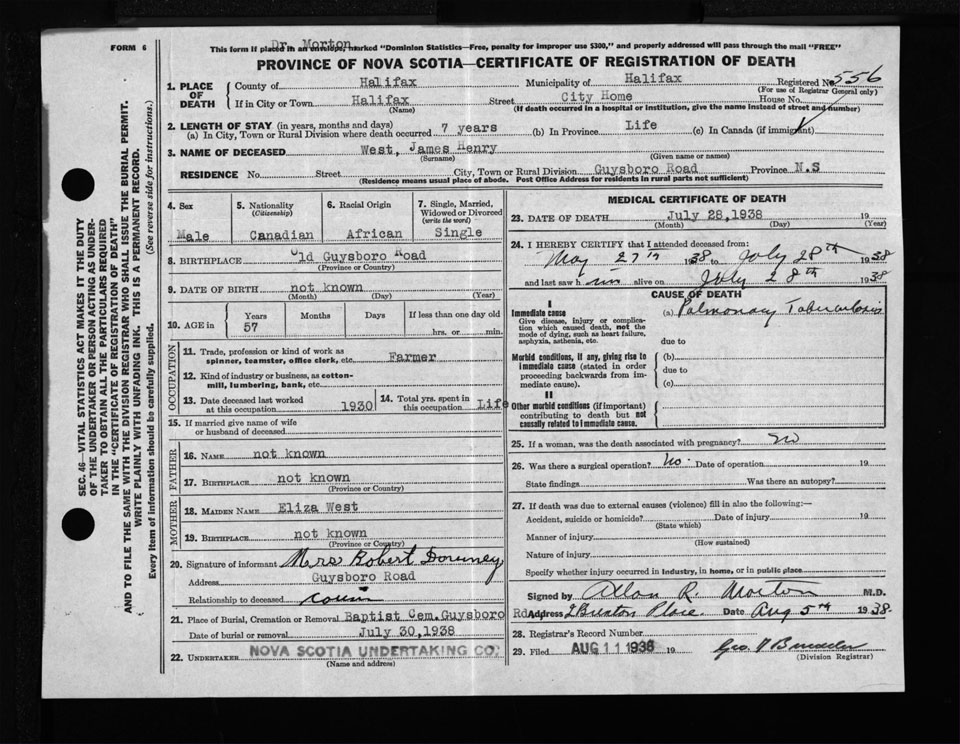 Dr. Morton
FORM 6
This form if placed in an envelope, marked "Dominion Statistics—Free, penalty for improper use $300," and properly addressed will pass through the mail "FREE"
PROVINCE OF NOVA SCOTIA—CERTIFICATE OF REGISTRATION OF DEATH
SEC. 46—VITAL STATISTICS ACT MAKES IT THE DUTY
OF THE UNDERTAKER OR PERSON ACTING AS UNDER-
TAKER TO OBTAIN ALL THE PARTICULARS REQUIRED
IN THE "CERTIFICATE OF REGISTRATION OF DEATH"
AND TO FILE THE SAME WITH THE DIVISION REGISTRAR WHO SHALL ISSUE THE BURIAL PERMIT.
WRITE PLAINLY WITH UNFADING INK. THIS IS A PERMANENT RECORD.
Every item of Information should be carefully supplied. (See reverse side for instructions.)
1. PLACE OF DEATH
County of Halifax Municipality of Halifax Registered No. 556
(For use of Registrar General only)
If in City or Town Halifax Street City Home House No.
(Name) (If death occurred in a hospital or institution, give the name instead of street and number)
2. LENGTH OF STAY (in years, months and days)
(a) In City, Town or Rural Division where death occurred 7 years (b) In Province Life (c) In Canada (if immigrant)
3. NAME OF DECEASED West, James Henry
(Surname) (Given name or names)
RESIDENCE No. Street City, Town or Rural Division Guysboro Road Province N.S
(Residence means usual place of abode. Post Office Address for residents in rural parts not sufficient)
4. Sex Male
5. Nationality (Citizenship) Canadian
6. Racial Origin African
7. Single, Married, Widowed or Divorced (write the word) Single
8. BIRTHPLACE Old Guysboro Road
(Province or Country)
9. DATE OF BIRTH not known
(Month) (Day) (Year)
10. AGE in Years Months Days If less than one day old
57 hrs. or min.
OCCUPATION
11. Trade, profession or kind of work as
spinner, teamster, office clerk, etc. Farmer
12. Kind of industry or business, as cotton-
mill, lumbering, bank, etc.
13. Date deceased last worked
at this occupation 1930
14. Total yrs. spent in
this occupation Life
15. If married give name of wife
or husband of deceased
FATHER
16. NAME not known
17. BIRTHPLACE not known
(Province or Country)
MOTHER
18. MAIDEN NAME Eliza West
19. BIRTHPLACE not known
(Province or Country)
20. Signature of informant Mrs Robert Downey
Address Guysboro Road
Relationship to deceased cousin
21. Place of Burial, Cremation or Removal Baptist Cem. Guysboro Rd
Date of burial or removal July 30,1938
22. UNDERTAKER NOVA SCOTIA UNDERTAKING CO.
(Name and address)
MEDICAL CERTIFICATE OF DEATH
23. DATE OF DEATH July 28,1938 19
(Month) (Day)
24. I HEREBY CERTIFY that I attended deceased from:
May 27th 1938 to July 28th 1938
and last saw him alive on July 28th 1938
CAUSE OF DEATH
I
Immediate cause
Give disease, injury or complica-
tion which caused death, not the
mode of dying, such as heart failure,
asphyxia, asthenia, etc.
(a) Pulmonary Tuberculosis
due to
Morbid conditions, if any, giving rise to
immediate cause (stated in order
proceeding backwards from im-
mediate cause).
(b)
due to
(c)
II
Other morbid conditions (if important)
contributing to death but not
causally related to immediate cause.
25. If a woman, was the death associated with pregnancy? no
26. Was there a surgical operation? No. Date of operation 19
State findings Was there an autopsy?
27. If death was due to external causes (violence) fill in also the following:—
Accident, suicide or homicide? Date of injury 19
(State which)
Manner of injury
(How sustained)
Nature of injury
Specify whether injury occurred in industry, in home, or in public place
Signed by Allan R. Morton M.D.
Address 2 Brenton Place. Date Aug 5th 1938
28. Registrar's Record Number
29. Filed AUG 11 1938 19
(Division Registrar)